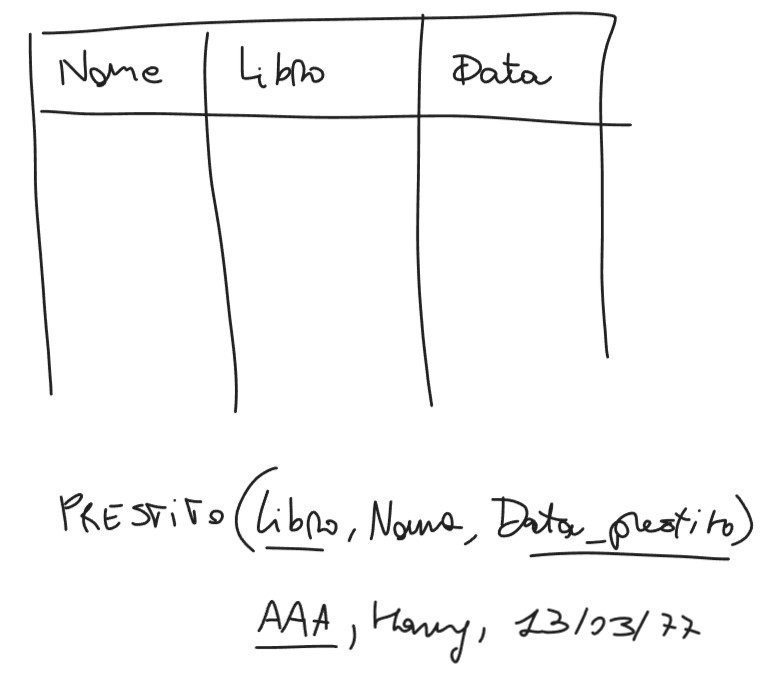 Nome Libro Data
PRESTITO (Libro, Nome, Data_prestito)
AAA, Harry, 13/03/77